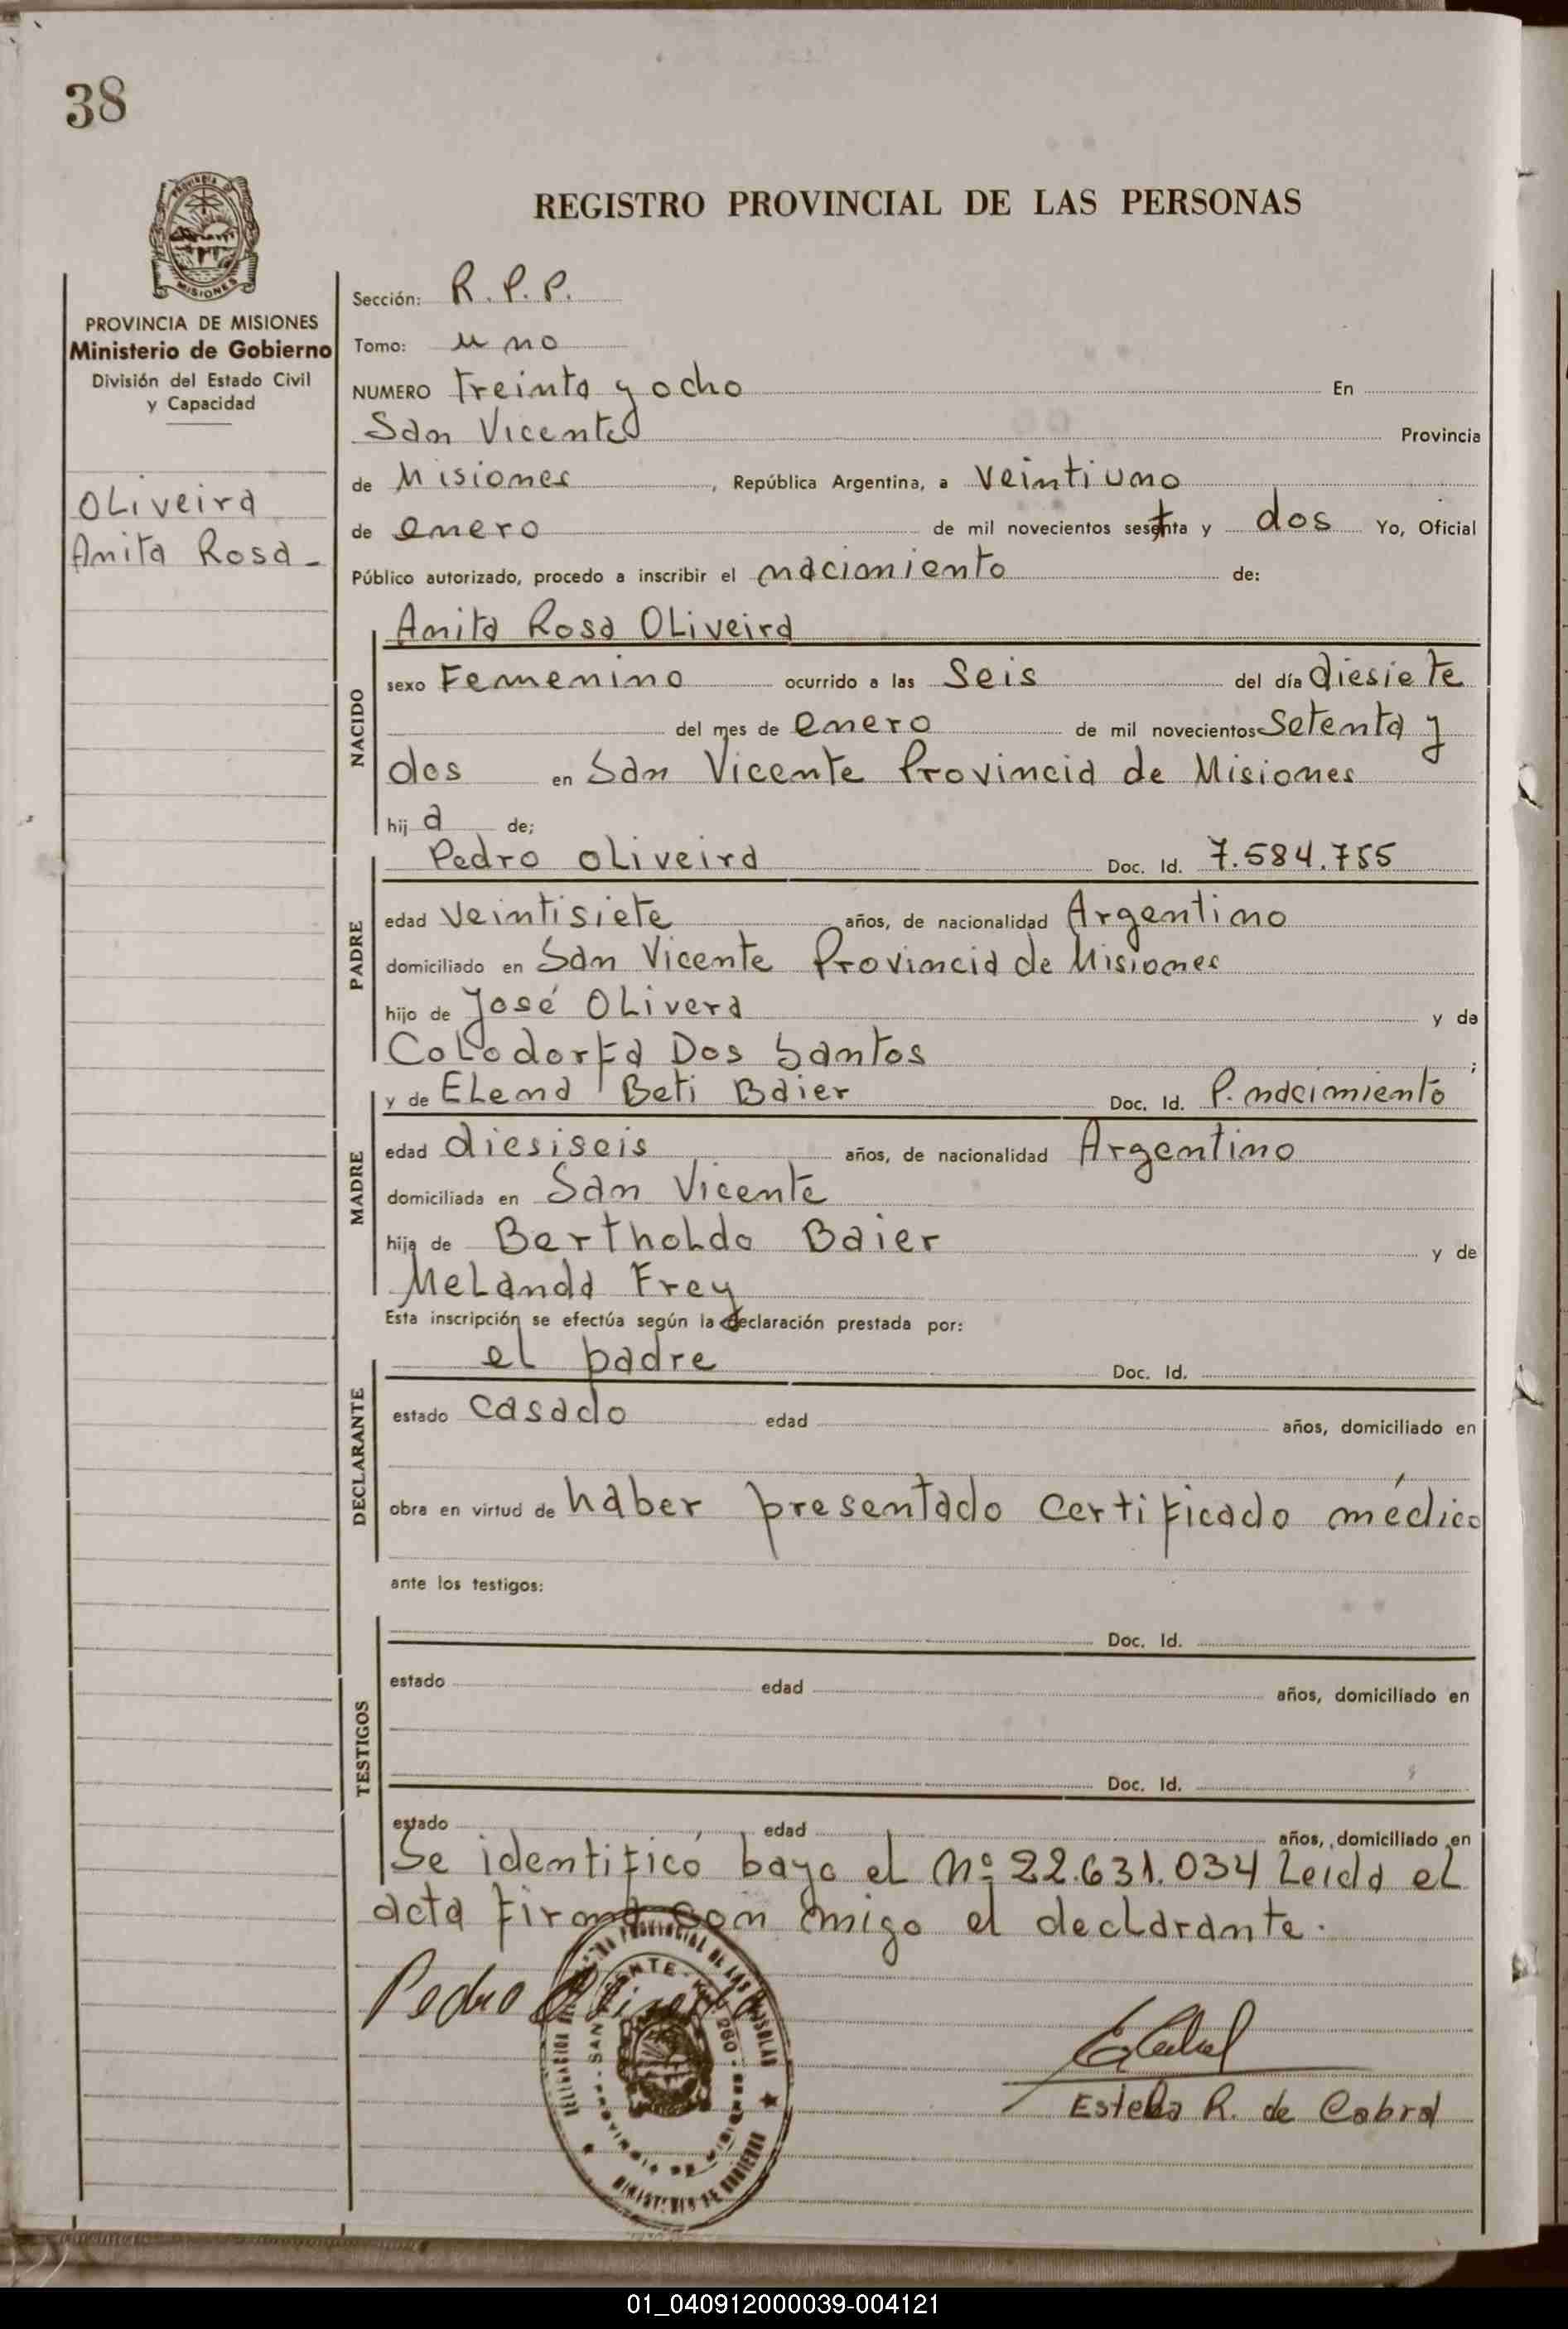 38
REGISTRO PROVINCIAL DE LAS PERSONAS
MISIONES
PROVINCIA DE MISIONES
Ministerio de Gobierno
División del Estado Civil
y Capacidad
OLiveira
Anita Rosa -
Sección: R. P. P.
Tomo: uno
NUMERO treinta y ocho En
San Vicente Provincia
de Misiones, República Argentina, a veintiuno
de enero de mil novecientos setenta y dos Yo, Oficial
Público autorizado, procedo a inscribir el nacimiento de:
Anita Rosa OLiveira
NACIDO
sexo Femenino ocurrido a las Seis del día diesiete
del mes de enero de mil novecientos Setenta y
dos en San Vicente Provincia de Misiones
hij a de;
PADRE
Pedro OLiveira Doc. Id. 7.584.755
edad veintisiete años, de nacionalidad Argentino
domiciliado en San Vicente Provincia de Misiones
hijo de José OLivera y de
Colodorfa Dos Santos ;
MADRE
y de ELena Beti Baier Doc. Id. P. nacimiento
edad diesiseis años, de nacionalidad Argentino
domiciliada en San Vicente
hija de Bertholdo Baier y de
MeLanda Frey
Esta inscripción se efectúa según la declaración prestada por:
DECLARANTE
el padre Doc. Id.
estado casado edad años, domiciliado en
obra en virtud de haber presentado certificado médico
ante los testigos:
TESTIGOS
Doc. Id.
estado edad años, domiciliado en
Doc. Id.
estado edad años, domiciliado en
Se identificó bayo el Nº 22.631.034 Leida el
acta firma con migo el declarante.
Pedro Olivera
Estela R. de Cabral
01_040912000039-004121